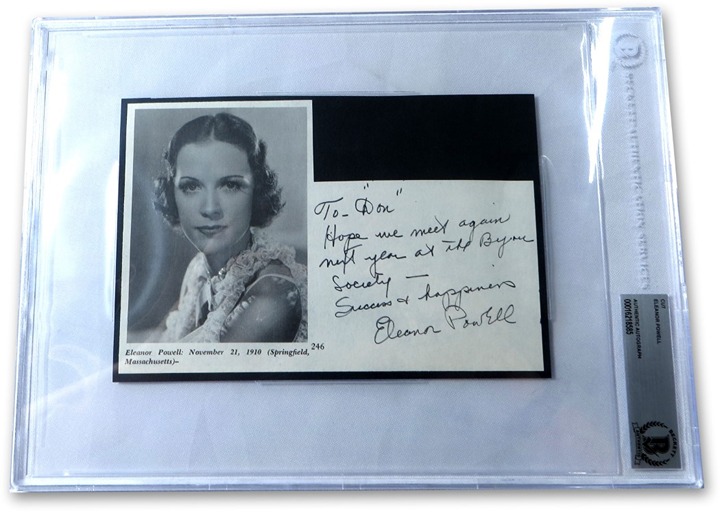 To - "Don"
Hope we meet again
next year at the Byrne
Society —
Success & happiness
Eleanor Powell
246
Eleanor Powell: November 21, 1910 (Springfield,
Massachusetts)–
BECKETT AUTHENTICATION SERVICES
CUT
ELEANOR POWELL
AUTHENTIC AUTOGRAPH
BECKETT
B